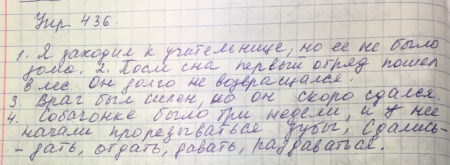 Упр. 436.
1. Я заходил к учительнице, но ее не было
дома. 2. После сна первый отряд пошел
в лес. Он долго не возвращался.
3. Враг был силен, но он скоро сдался.
4. Собачонке было три недели, и у нее
начали прорезываться зубы,
- дать, отдать, давать, раздаваться.